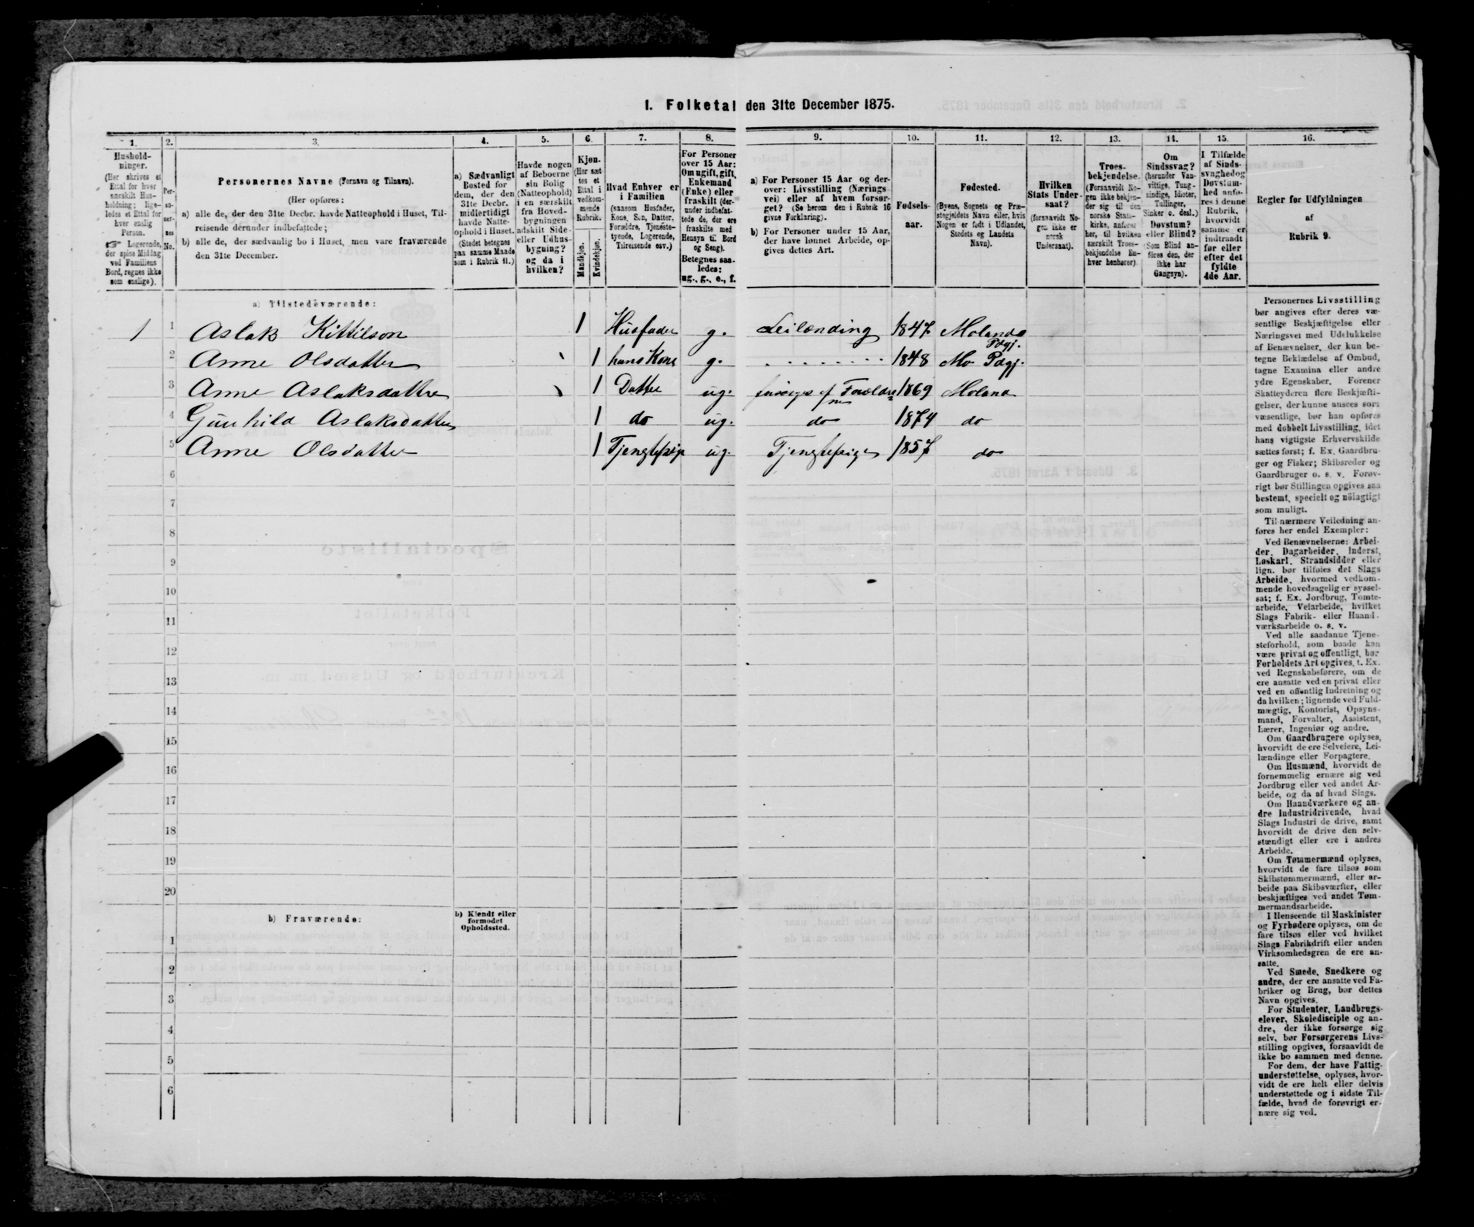 1. Folketal den 31te December 1875.
1. 2. 3. 4. 5. 6. 7. 8. 9. 10. 11. 12. 13. 14. 15. 16.
Hushold-
ninger.
(Her skrives et
Ettal for hver
særskilt Hus-
holdning; lige-
ledes et Ettal for
hver enslig
Person.
☞ Logerende,
der spise Middag
ved Familiens
Bord, regnes ikke
som enslige).
Per-
so-
ner-
nes
No.
Personernes Navne (Fornavn og Tilnavn).
(Her opføres:
a) alle de, der den 31te Decbr. havde Natteophold i Huset, Til-
reisende derunder indbefattede;
b) alle de, der sædvanlig bo i Huset, men vare fraværende
den 31te December.
a) Sædvanligt
Bosted for
dem, der den
31te Decbr.
midlertidigt
havde Natte-
ophold i Huset.
(Stedet betegnes
paa samme Maade
som i Rubrik 11.)
Havde nogen
af Beboerne
sin Bolig
(Natteophold)
i en særskilt
fra Hoved-
bygningen
adskilt Side-
eller Udhus-
bygning?
og da i
hvilken?
Kjøn.
(Her sæt-
tes et
Ettal i
vedkom-
mende
Rubrik.
Mandkjøn.
Kvindekjøn.
Hvad Enhver er
i Familien
(saasom Husfader,
Kone, Søn, Datter,
Forældre, Tjeneste-
tyende, Logerende,
Tilreisende osv.)
For Personer
over 15 Aar:
Om ugift, gift,
Enkemand
(Enke) eller
fraskilt (der-
under indbefat-
tede de, der ere
fraskilte med
Hensyn til Bord
og Seng).
Betegnes saa-
ledes:
ug., g., e., f.
a) For Personer 15 Aar og der-
over: Livsstilling (Nærings-
vei) eller af hvem forsør-
get? (Se herom den i Rubrik 16
givne Forklaring).
b) For Personer under 15 Aar,
der have lønnet Arbeide, op-
gives dettes Art.
Fødsels-
aar.
Fødested.
(Byens, Sognets og Præ-
stegjeldets Navn eller, hvis
Nogen er født i Udlandet,
Stedets og Landets
Navn).
Hvilken
Stats Under-
saat?
(forsaavidt No-
gen ikke er
norsk
Undersaat).
Troes-
bekjendelse.
(Forsaavidt No-
gen ikke bekjen-
der sig til den
norske Stats-
kirke, anføres
her, til hvilken
særskilt Troes-
bekjendelse En-
hver henhører).
Om
Sindssvag?
(herunder Van-
vittige, Tung-
sindige, Idioter,
Tullinger,
Sinker o. desl.)
Døvstum?
eller Blind?
(Som Blind an-
føres den, der
ikke har
Gangsyn).
I Tilfælde
af Sinds-
svaghed og
Døvstum-
hed anfø-
res i denne
Rubrik,
hvorvidt
samme er
indtraadt
før eller
efter det
fyldte
4de Aar.
Regler for Udfyldningen
af
Rubrik 9.
a) Tilstedeværende:
1 1 Aslak Kittilson 1 Husfader g. Leilænding 1847 Molands Pdgj.
2 Anne Olsdatter 1 hans Kone g. 1848 Mo Pdgj.
3 Anne Aslaksdatter 1 Datter ug. forsørges af Forældrene 1869 Moland
4 Gunhild Aslaksdatter 1 do ug. do 1874 do
5 Anne Olsdatter 1 Tjenestepige ug. Tjenestepige 1857 do
6
7
8
9
10
11
12
13
14
15
16
17
18
19
20
b) Fraværende:
b) Kjendt eller
formodet
Opholdssted.
1
2
3
4
5
6
Personernes Livsstilling
bør angives efter deres væ-
sentlige Beskjæftigelse eller
Næringsvei med Udelukkelse
af Benævnelser, der kun be-
tegne Beklædelse af Ombud,
tagne Examina eller andre
ydre Egenskaber. Forener
Skatteyderen flere Beskjæfti-
gelser, der kunne ansees som
væsentlige, bør han opføres
med dobbelt Livsstilling, idet
hans vigtigste Erhvervskilde
sættes først; f. Ex. Gaardbru-
ger og Fisker; Skibsreder og
Gaardbruger o. s. v. Forøv-
rigt bør Stillingen opgives saa
bestemt, specielt og nøiagtigt
som muligt.
Til nærmere Veiledning an-
føres her endel Exempler:
Ved Benævnelserne: Arbei-
der, Dagarbeider, Inderst,
Løskarl, Strandsidder eller
lign. bør tilføies det Slags
Arbeide, hvormed vedkom-
mende hovedsagelig er syssel-
sat; f. Ex. Jordbrug, Tomte-
arbeide, Veiarbeide, hvilket
Slags Fabrik- eller Haand-
værksarbeide o. s. v.
Ved alle saadanne Tjene-
steforhold, som baade kan
være privat og offentligt, bør
Forholdets Art opgives, t. Ex.
ved Regnskabsførere, om de
ere ansatte ved en privat eller
ved en offentlig Indretning og
da hvilken; lignende ved Fuld-
mægtig, Kontorist, Opsyns-
mand, Forvalter, Assistent,
Lærer, Ingeniør og andre.
Om Gaardbrugere oplyses,
hvorvidt de ere Selveiere, Lei-
lændinge eller Forpagtere.
Om Husmænd, hvorvidt de
fornemmelig ernære sig ved
Jordbrug eller ved andet Ar-
beide, og da af hvad Slags.
Om Haandværkere og an-
dre Industridrivende, hvad
Slags Industri de drive, samt
hvorvidt de drive den selv-
stændigt eller ere i andres
Arbeide.
Om Tømmermænd oplyses,
hvorvidt de fare tilsøs som
Skibstømmermænd, eller ar-
beide paa Skibsværfter, eller
beskjæftiges ved andet Tøm-
mermandsarbeide.
I Henseende til Maskinister
og Fyrbødere oplyses, om de
fare tilsøs eller ved hvilket
Slags Fabrikdrift eller anden
Virksomhedsgren de ere an-
satte.
Ved Smede, Snedkere og
andre, der ere ansatte ved Fa-
briker og Brug, bør dettes
Navn opgives.
For Studenter, Landbrugs-
elever, Skoledisciple og an-
dre, der ikke forsørge sig
selv, bør Forsørgerens Livs-
stilling opgives, forsaavidt de
ikke bo sammen med denne.
For dem, der have Fattig-
understøttelse, oplyses, hvor-
vidt de ere helt eller delvis
understøttede og i sidste Til-
fælde, hvad de forøvrigt er-
nære sig ved.